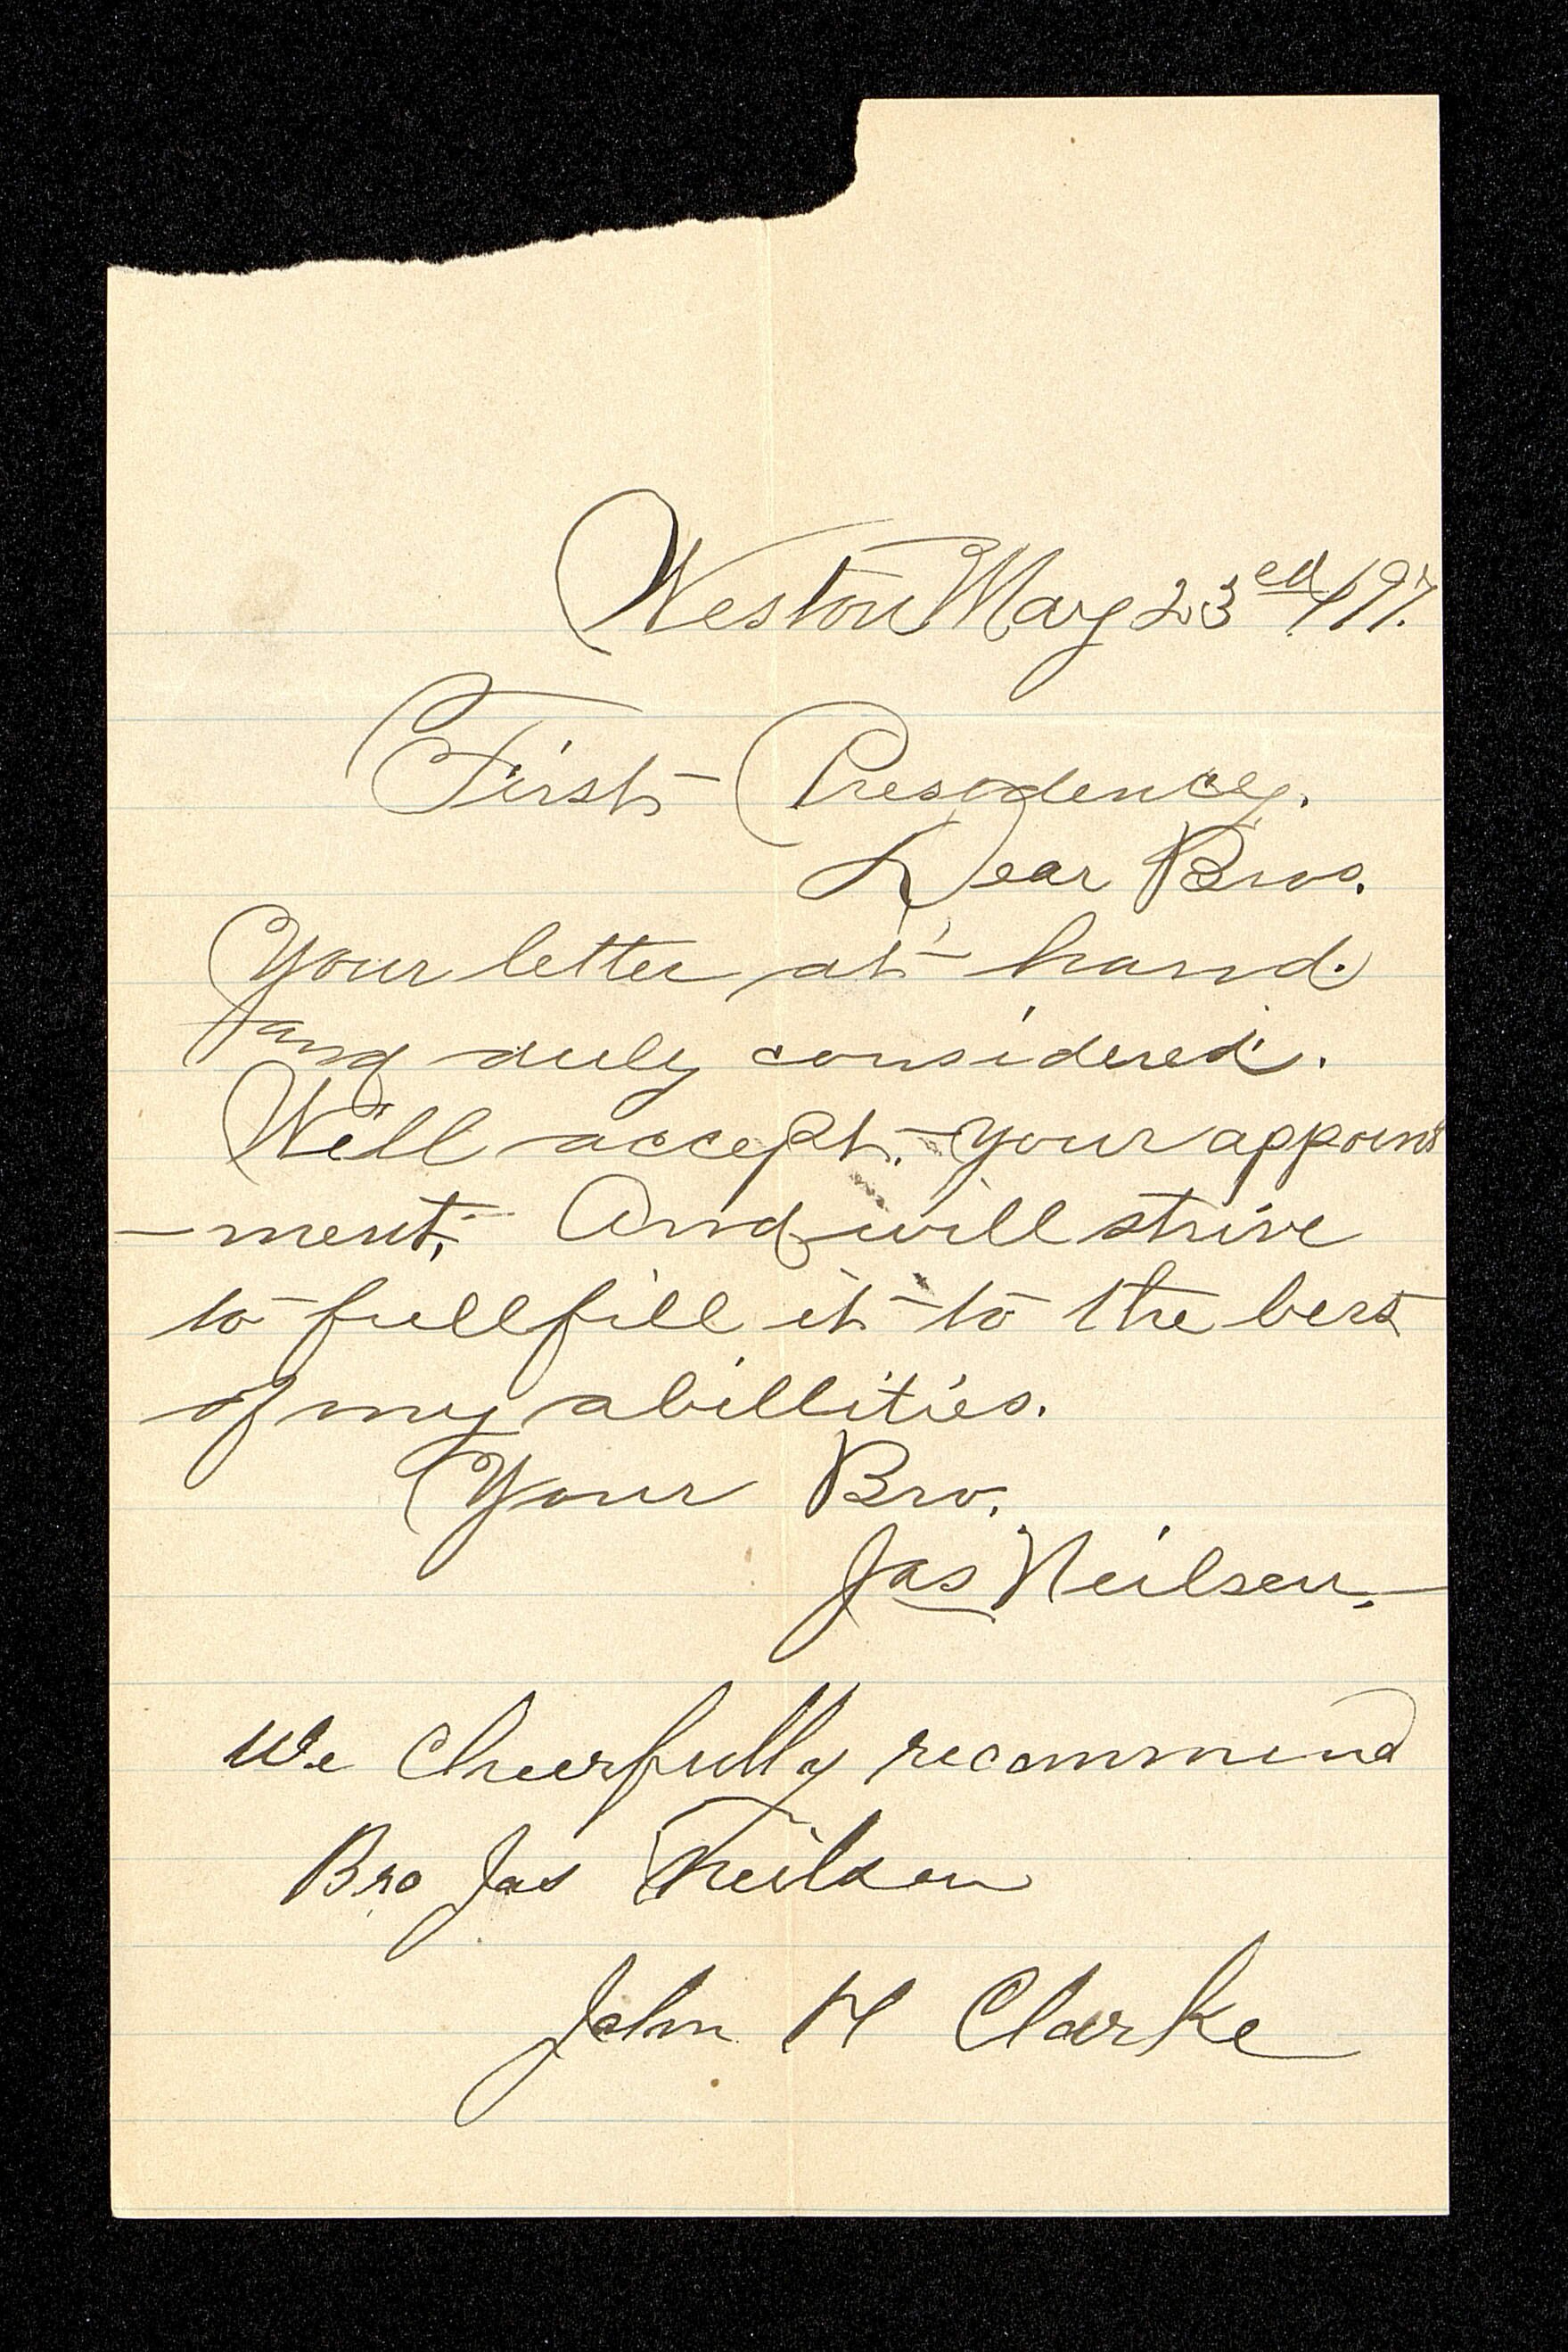 Weston May 23ed/97.
First Presidency.
Dear Bros.
Your letter at hand.
and duly considered.
Will accept. your appoint
-ment. And will strive
to fullfill it to the best
of my abillities.
Your Bro.
Jas Neilsen.
We Cheerfully recommend
Bro Jas Neilsen
John H Clarke